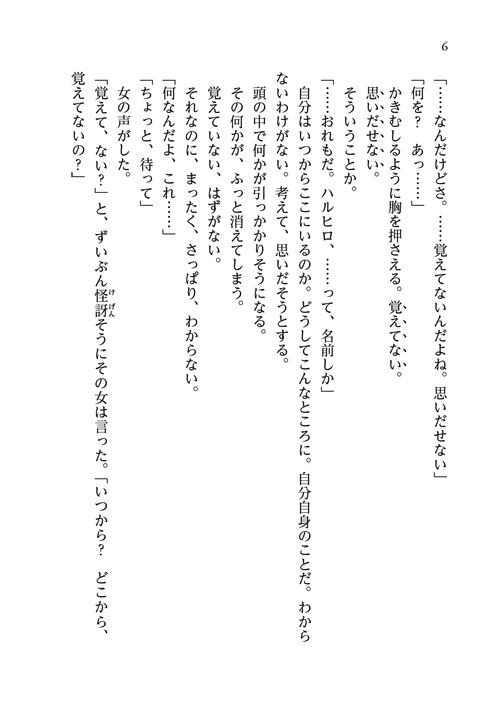 6
「……なんだけどさ。……覚えてないんだよね。思いだせない」
「何を？　あっ……」
かきむしるように胸を押さえる。覚えてない。
思いだせない。
そういうことか。
「……おれもだ。ハルヒロ、……って、名前しか」
自分はいつからここにいるのか。どうしてこんなところに。自分自身のことだ。わから
ないわけがない。考えて、思いだそうとする。
頭の中で何かが引っかかりそうになる。
その何かが、ふっと消えてしまう。
覚えていない、はずがない。
それなのに、まったく、さっぱり、わからない。
「何なんだよ、これ……」
「ちょっと、待って」
女の声がした。
「覚えて、ない？」と、ずいぶん怪訝そうにその女は言った。「いつから？　どこから、
覚えてないの？」